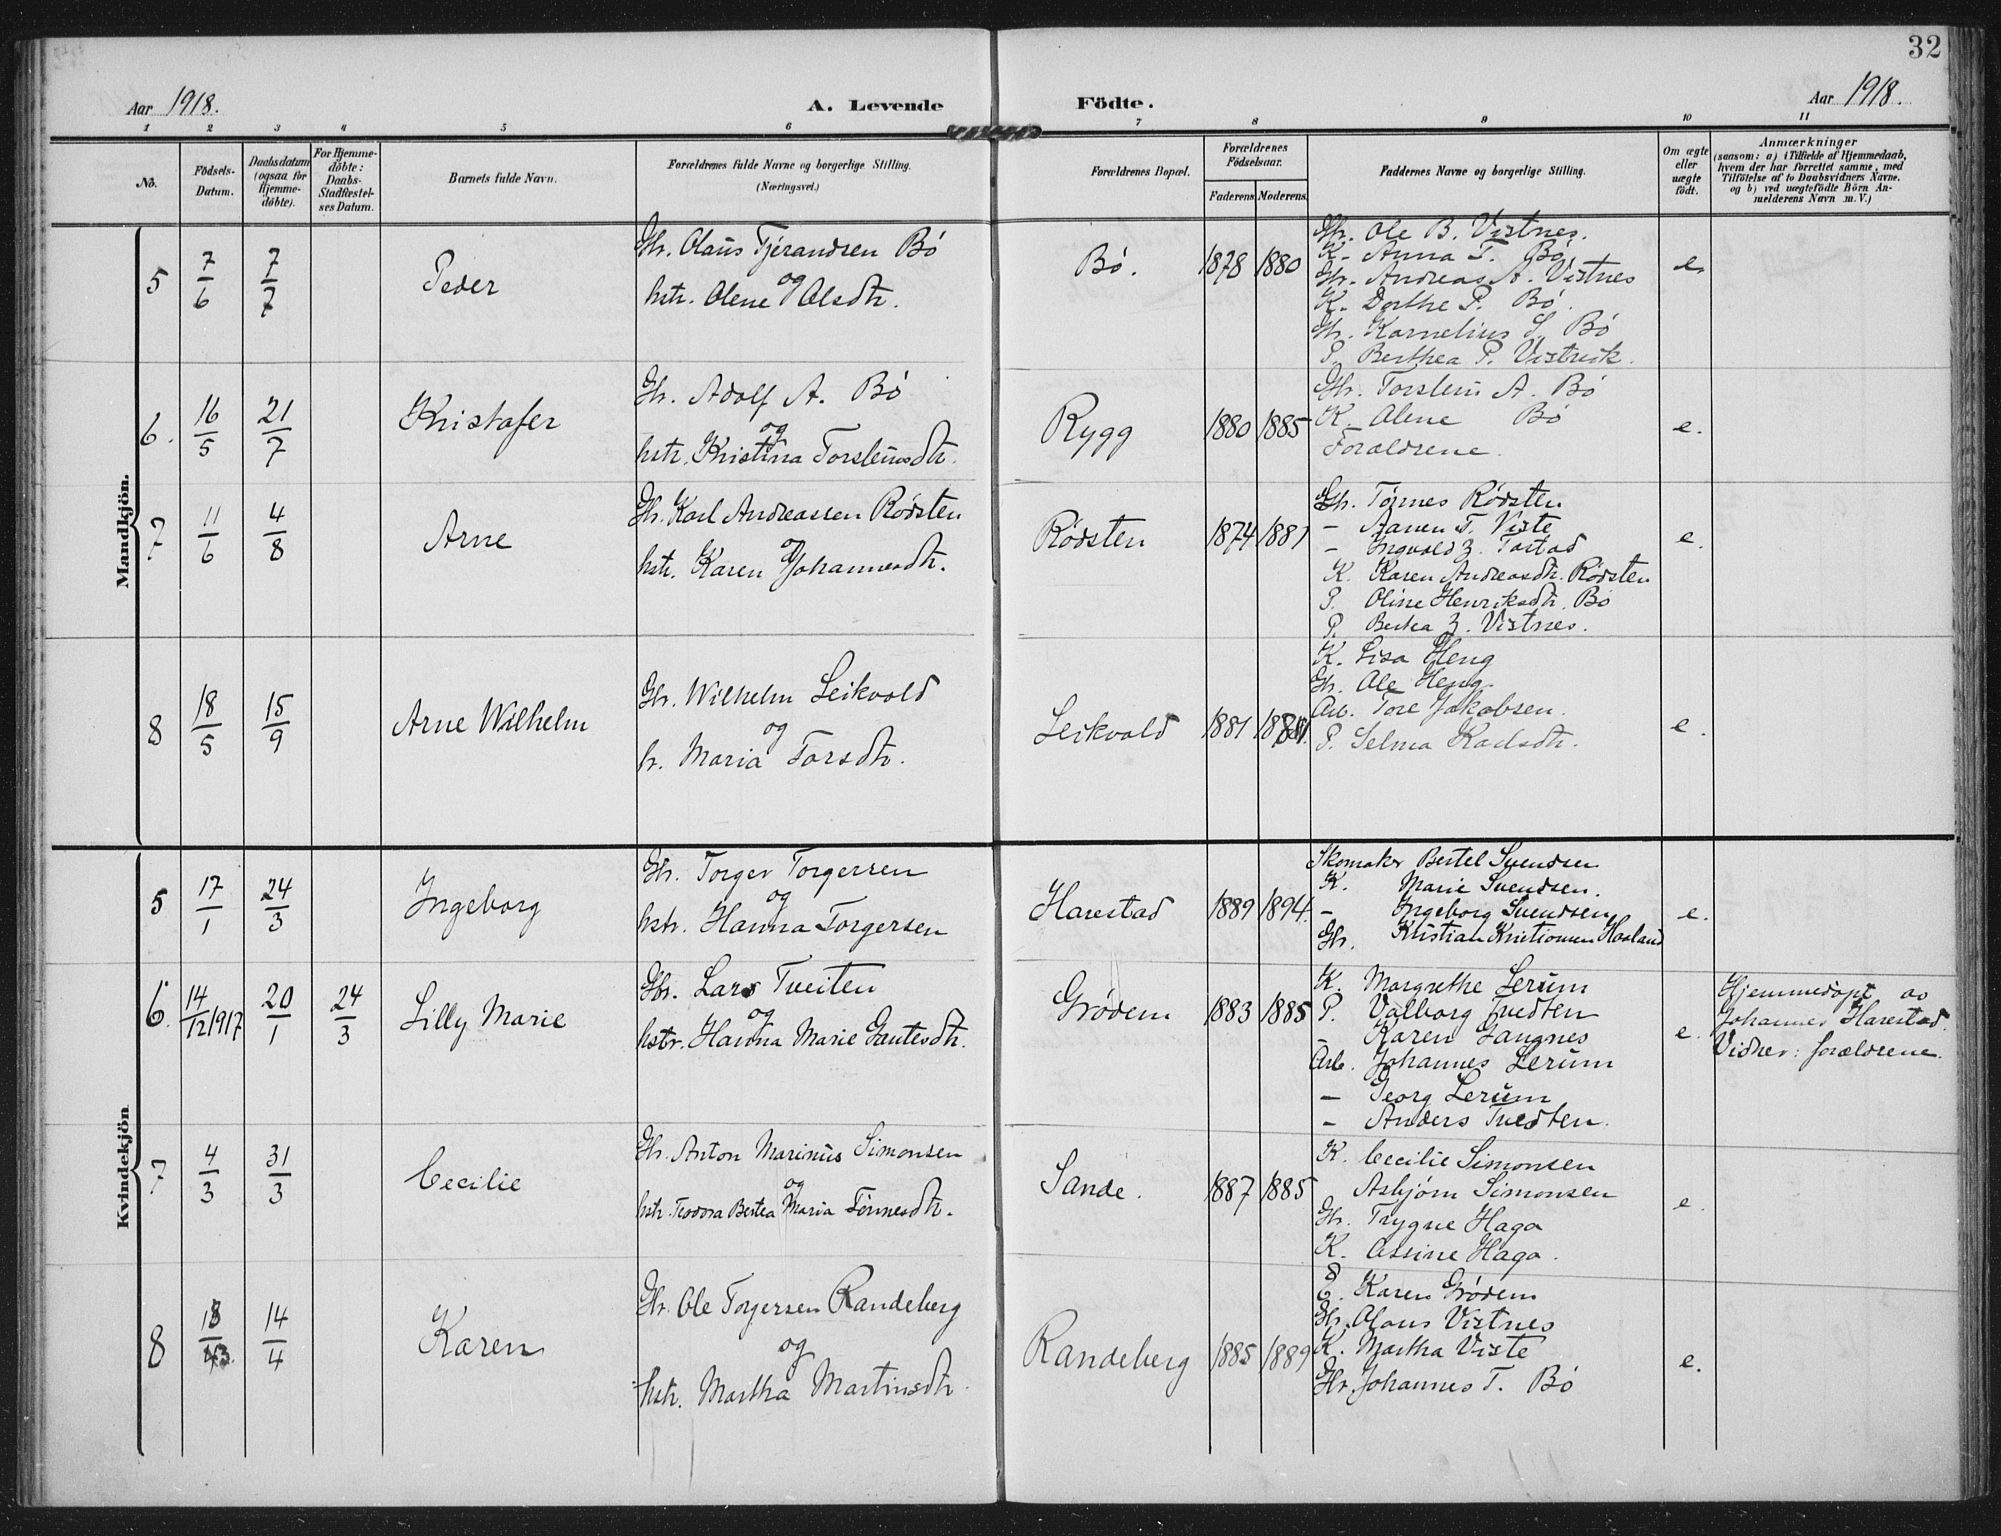 32
Aar 1918.
A. Levende
Födte.
Aar 1918.
1 2 3 4 5 6 7 8 9 10 11
No.
Födsels-
Datum.
Daabsdatum
(ogsaa for
Hjemme-
döbte).
For Hjemme-
döbte:
Daabs-
Stadfæstel-
ses Datum.
Barnets fulde Navn.
Forældrenes fulde Navne og borgerlige Stilling.
(Næringsvei.)
Forældrenes Bopæl.
Forældrenes
Födselsaar.
Faderens. Moderens.
Faddernes Navne og borgerlige Stilling.
Om ægte
eller
uægte
født.
Anmærkninger
(saasom: a) i Tilfælde af Hjemmedaab,
hvem der har forrettet samme, med
Tilföielse af to Daabsvidners Navne,
og b) ved uægtefödte Börn An-
melderens Navn m. V.)
Mandkjön.
5 7/6 7/7 Peder
Gbr. Olaus Tjerandsen Bø
og
hstr. Olene Olsdtr.
Bø. 1878 1880
Gbr. Ole B. Vistnes.
K. Anna T. Bø
Gbr. Andreas A. Vistnes
K. Dorthe P. Bø.
Gbr. Kornelius S. Bø
P. Berthea P. Vistvik.
e.
6. 16/5 21/7 Kristofer
Gbr. Adolf A. Bø
og
hstr. Kristina Torsteinsdtr.
Rygg 1880 1885
Gbr. Torstein A. Bø
K. Olene Bø
Forældrene.
e.
7 11/6 4/8 Arne
Gbr. Karl Andreassen Rødsten
og
hstr. Karen Johannesdtr.
Rødsten 1874 1881
Gbr. Tønnes Rødsten
- Aanen T. Viste
- Ingvald Z. Tostad
K. Karen Andreasdtr. Rødsten
P. Oline Henriksdtr. Bø
P. Bertea Z. Vistnes.
e.
8 18/5 15/9 Arne Wilhelm
Gbr. Wilhelm Leikvold
og
h. Maria Torsdtr.
Leikvold 1881 1881.
K. Lisa Heng
Gbr. Ole Heng.
Arb. Tore Jakobsen.
P. Selma Karlsdtr.
e.
Kvindekjön
5 17/1 24/3 Ingeborg
Gbr. Torger Torgersen
og
hstr. Hanna Torgersen
Harestad 1889 1894.
Skomaker Bertel Svendsen
K. Marie Svendsen.
- Ingeborg Svendsen
Gbr. Kristian Kristiansen Haaland
e.
6. 14/12 1917 20/1 24/3 Lilly Marie
Gbr. Lars Tveiten
og
hstr. Hanna Marie Gautesdtr.
Grødem 1883 1885
K. Margrethe Lerum
P. Valborg Tvedten
- Karen Langnes
Arb. Johannes Lerum
- Georg Lerum
- Anders Tvedten.
e.
Hjemmedøpt av
Johannes Harestad.
Vidner: forældrene.
7 4/3 31/3 Cecilie
Gbr. Anton Marinius Simonsen
og
hstr. Teodora Bertea Maria Tønnesdtr.
Sande. 1887 1885
K. Cecilie Simonsen
Asbjørn Simonsen
Gbr. Trygve Haga
K. Assine Haga.
e.
8 18/3. 14/4 Karen
Gbr. Ole Torgersen Randeberg
og
hstr. Martha Martinsdtr.
Randeberg 1885 1889
P. Karen Grødem
Gbr. Olaus Vistnes
K. Martha Viste
Gbr. Johannes T. Bø
e.